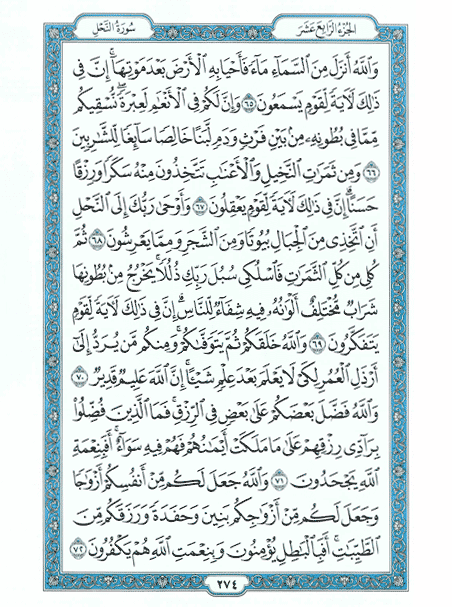 سُورَةُ النَّحۡلِ
الجُزۡءُ الرَّابِعَ عَشَرَ
وَٱللَّهُ أَنزَلَ مِنَ ٱلسَّمَآءِ مَآءٗ فَأَحۡيَا بِهِ ٱلۡأَرۡضَ بَعۡدَ مَوۡتِهَآۚ إِنَّ فِي
ذَٰلِكَ لَأٓيَةٗ لِّقَوۡمٖ يَسۡمَعُونَ ٦٥ وَإِنَّ لَكُمۡ فِي ٱلۡأَنۡعَٰمِ لَعِبۡرَةٗۖ نُّسۡقِيكُم
مِّمَّا فِي بُطُونِهِۦ مِنۢ بَيۡنِ فَرۡثٖ وَدَمٖ لَّبَنًا خَالِصٗا سَآئِغٗا لِّلشَّٰرِبِينَ
٦٦ وَمِن ثَمَرَٰتِ ٱلنَّخِيلِ وَٱلۡأَعۡنَٰبِ تَتَّخِذُونَ مِنۡهُ سَكَرٗا وَرِزۡقًا
حَسَنًاۚ إِنَّ فِي ذَٰلِكَ لَأٓيَةٗ لِّقَوۡمٖ يَعۡقِلُونَ ٦٧ وَأَوۡحَىٰ رَبُّكَ إِلَى ٱلنَّحۡلِ
أَنِ ٱتَّخِذِي مِنَ ٱلۡجِبَالِ بُيُوتٗا وَمِنَ ٱلشَّجَرِ وَمِمَّا يَعۡرِشُونَ ٦٨ ثُمَّ
كُلِي مِن كُلِّ ٱلثَّمَرَٰتِ فَٱسۡلُكِي سُبُلَ رَبِّكِ ذُلُلٗاۚ يَخۡرُجُ مِنۢ بُطُونِهَا
شَرَابٞ مُّخۡتَلِفٌ أَلۡوَٰنُهُۥ فِيهِ شِفَآءٞ لِّلنَّاسِۚ إِنَّ فِي ذَٰلِكَ لَأٓيَةٗ لِّقَوۡمٖ
يَتَفَكَّرُونَ ٦٩ وَٱللَّهُ خَلَقَكُمۡ ثُمَّ يَتَوَفَّىٰكُمۡۚ وَمِنكُم مَّن يُرَدُّ إِلَىٰٓ
أَرۡذَلِ ٱلۡعُمُرِ لِكَيۡ لَا يَعۡلَمَ بَعۡدَ عِلۡمٖ شَيۡـًٔاۚ إِنَّ ٱللَّهَ عَلِيمٞ قَدِيرٞ ٧٠
وَٱللَّهُ فَضَّلَ بَعۡضَكُمۡ عَلَىٰ بَعۡضٖ فِي ٱلرِّزۡقِۚ فَمَا ٱلَّذِينَ فُضِّلُواْ
بِرَآدِّي رِزۡقِهِمۡ عَلَىٰ مَا مَلَكَتۡ أَيۡمَٰنُهُمۡ فَهُمۡ فِيهِ سَوَآءٌۚ أَفَبِنِعۡمَةِ
ٱللَّهِ يَجۡحَدُونَ ٧١ وَٱللَّهُ جَعَلَ لَكُم مِّنۡ أَنفُسِكُمۡ أَزۡوَٰجٗا
وَجَعَلَ لَكُم مِّنۡ أَزۡوَٰجِكُم بَنِينَ وَحَفَدَةٗ وَرَزَقَكُم مِّنَ
ٱلطَّيِّبَٰتِۚ أَفَبِٱلۡبَٰطِلِ يُؤۡمِنُونَ وَبِنِعۡمَتِ ٱللَّهِ هُمۡ يَكۡفُرُونَ ٧٢
٢٧٤